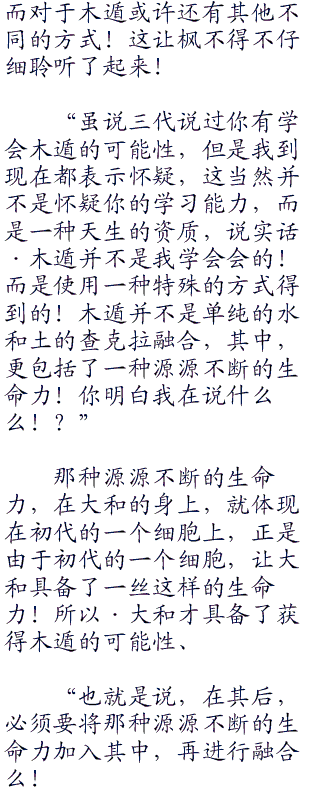 而对于木遁或许还有其他不
同的方式！这让枫不得不仔
细聆听了起来！
“虽说三代说过你有学
会木遁的可能性，但是我到
现在都表示怀疑，这当然并
不是怀疑你的学习能力，而
是一种天生的资质，说实话
·木遁并不是我学会会的！
而是使用一种特殊的方式得
到的！木遁并不是单纯的水
和土的查克拉融合，其中，
更包括了一种源源不断的生
命力！你明白我在说什么
么！？”
那种源源不断的生命
力，在大和的身上，就体现
在初代的一个细胞上，正是
由于初代的一个细胞，让大
和具备了一丝这样的生命
力！所以·大和才具备了获
得木遁的可能性、
“也就是说，在其后，
必须要将那种源源不断的生
命力加入其中，再进行融合
么！